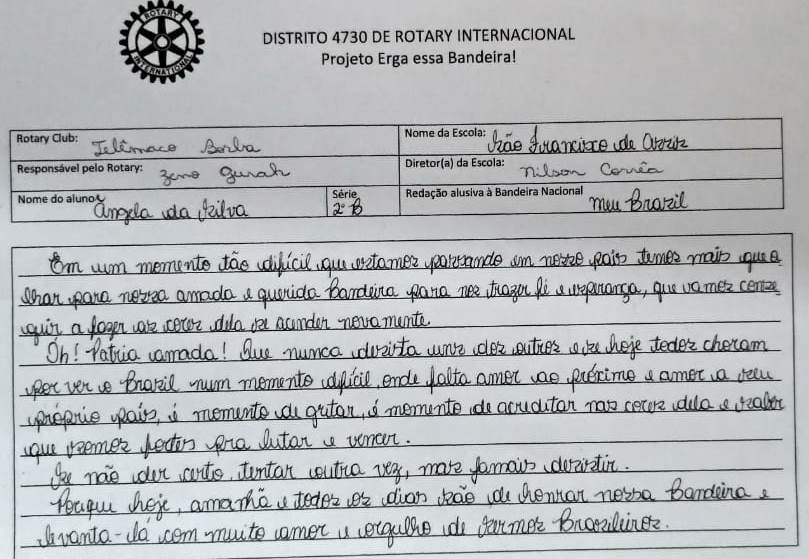 ROTARY
INTERNATIONAL
DISTRITO 4730 DE ROTARY INTERNACIONAL
Projeto Erga essa Bandeira!
Rotary Club: Telêmaco Borba
Nome da Escola: São Francisco de Assis
Responsável pelo Rotary: Zeno Gurah
Diretor(a) da Escola: Nilson Corrêa
Nome do aluno: Angela da Silva
Série 2º B
Redação alusiva à Bandeira Nacional meu Brazil
Em um momento tão difícil, que estamos passando em nosso país temos mais que o
lhar para nossa amada e querida Bandeira para nos trazer fé e esperança, que vamos conse
guir a fazer as cores dela se acender novamente.
Oh! Pátria amada! Que nunca desista uns dos outros e se hoje todos choram
por ver o Brazil num momento difícil, onde falta amor ao próximo e amor a seu
próprio país, é momento de gritar, é momento de acreditar nas cores dela e saber
que somos fortes pra lutar e vencer.
Se não der certo, tentar outra vez, mas jamais desistir.
Porque hoje, amanhã e todos os dias são de honrar nossa Bandeira e
levanta-la com muito amor e orgulho de sermos Brasileiros.